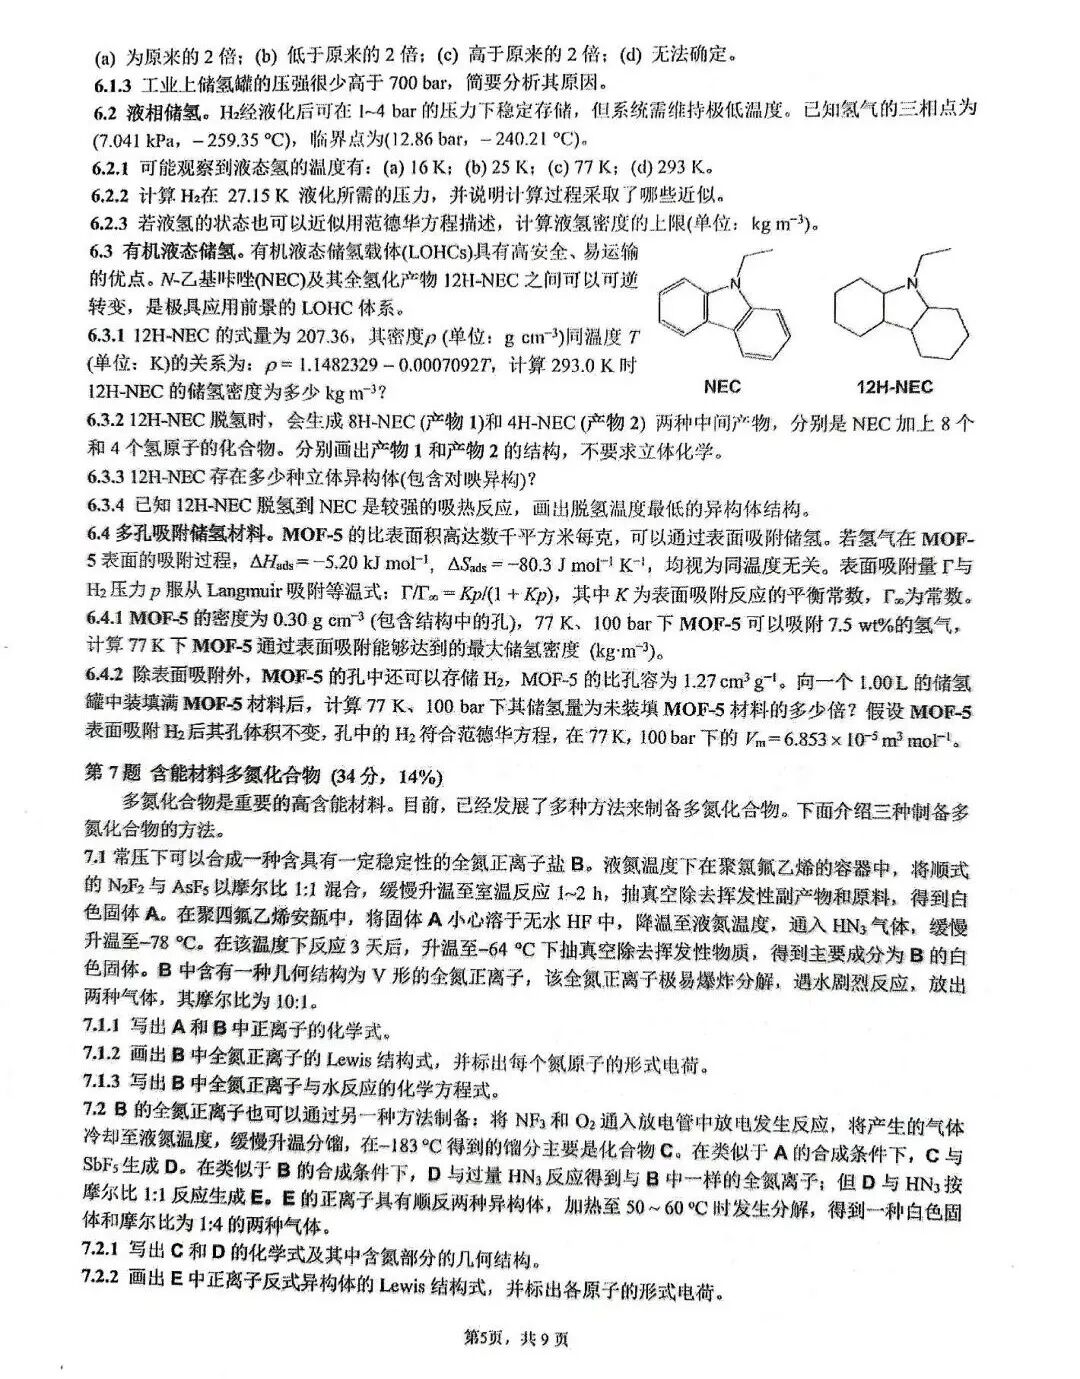 (a) 为原来的 2 倍；(b) 低于原来的 2 倍；(c) 高于原来的 2 倍；(d) 无法确定。
6.1.3 工业上储氢罐的压强很少高于 700 bar，简要分析其原因。
6.2 液相储氢。H₂经液化后可在 1~4 bar 的压力下稳定存储，但系统需维持极低温度。已知氢气的三相点为
(7.041 kPa，– 259.35 °C)，临界点为(12.86 bar，– 240.21 °C)。
6.2.1 可能观察到液态氢的温度有：(a) 16 K；(b) 25 K；(c) 77 K；(d) 293 K。
6.2.2 计算 H₂在 27.15 K 液化所需的压力，并说明计算过程采取了哪些近似。
6.2.3 若液氢的状态也可以近似用范德华方程描述，计算液氢密度的上限(单位：kg m⁻³)。
6.3 有机液态储氢。有机液态储氢载体(LOHCs)具有高安全、易运输
的优点。N-乙基咔唑(NEC)及其全氢化产物 12H-NEC 之间可以可逆
转变，是极具应用前景的 LOHC 体系。
6.3.1 12H-NEC 的式量为 207.36，其密度ρ (单位：g cm⁻³)同温度 T
(单位：K)的关系为：ρ = 1.1482329 – 0.0007092T，计算 293.0 K 时
12H-NEC 的储氢密度为多少 kg m⁻³？
N
NEC
N
12H-NEC
6.3.2 12H-NEC 脱氢时，会生成 8H-NEC (产物 1)和 4H-NEC (产物 2) 两种中间产物，分别是 NEC 加上 8 个
和 4 个氢原子的化合物。分别画出产物 1 和产物 2 的结构，不要求立体化学。
6.3.3 12H-NEC 存在多少种立体异构体(包含对映异构)？
6.3.4 已知 12H-NEC 脱氢到 NEC 是较强的吸热反应，画出脱氢温度最低的异构体结构。
6.4 多孔吸附储氢材料。MOF-5 的比表面积高达数千平方米每克，可以通过表面吸附储氢。若氢气在 MOF-
5 表面的吸附过程，ΔHads = –5.20 kJ mol⁻¹，ΔSads = –80.3 J mol⁻¹ K⁻¹，均视为同温度无关。表面吸附量 Γ 与
H₂ 压力 p 服从 Langmuir 吸附等温式：Γ/Γ∞ = Kp/(1 + Kp)，其中 K 为表面吸附反应的平衡常数，Γ∞为常数。
6.4.1 MOF-5 的密度为 0.30 g cm⁻³ (包含结构中的孔)，77 K、100 bar 下 MOF-5 可以吸附 7.5 wt%的氢气，
计算 77 K 下 MOF-5 通过表面吸附能够达到的最大储氢密度 (kg·m⁻³)。
6.4.2 除表面吸附外，MOF-5 的孔中还可以存储 H₂，MOF-5 的比孔容为 1.27 cm³ g⁻¹。向一个 1.00 L 的储氢
罐中装填满 MOF-5 材料后，计算 77 K、100 bar 下其储氢量为未装填 MOF-5 材料的多少倍？假设 MOF-5
表面吸附 H₂ 后其孔体积不变，孔中的 H₂ 符合范德华方程，在 77 K，100 bar 下的 Vm = 6.853 × 10⁻⁵ m³ mol⁻¹。
第 7 题 含能材料多氮化合物 (34 分，14%)
多氮化合物是重要的高含能材料。目前，已经发展了多种方法来制备多氮化合物。下面介绍三种制备多
氮化合物的方法。
7.1 常压下可以合成一种含具有一定稳定性的全氮正离子盐 B。液氮温度下在聚氯氟乙烯的容器中，将顺式
的 N₂F₂ 与 AsF₅ 以摩尔比 1:1 混合，缓慢升温至室温反应 1~2 h，抽真空除去挥发性副产物和原料，得到白
色固体 A。在聚四氟乙烯安瓿中，将固体 A 小心溶于无水 HF 中，降温至液氮温度，通入 HN₃ 气体，缓慢
升温至–78 °C。在该温度下反应 3 天后，升温至–64 °C 下抽真空除去挥发性物质，得到主要成分为 B 的白
色固体。B 中含有一种几何结构为 V 形的全氮正离子，该全氮正离子极易爆炸分解，遇水剧烈反应，放出
两种气体，其摩尔比为 10:1。
7.1.1 写出 A 和 B 中正离子的化学式。
7.1.2 画出 B 中全氮正离子的 Lewis 结构式，并标出每个氮原子的形式电荷。
7.1.3 写出 B 中全氮正离子与水反应的化学方程式。
7.2 B 的全氮正离子也可以通过另一种方法制备：将 NF₃ 和 O₂ 通入放电管中放电发生反应，将产生的气体
冷却至液氮温度，缓慢升温分馏，在–183 °C 得到的馏分主要是化合物 C。在类似于 A 的合成条件下，C 与
SbF₅ 生成 D。在类似于 B 的合成条件下，D 与过量 HN₃ 反应得到与 B 中一样的全氮离子；但 D 与 HN₃ 按
摩尔比 1:1 反应生成 E。E 的正离子具有顺反两种异构体，加热至 50 ~ 60 °C 时发生分解，得到一种白色固
体和摩尔比为 1:4 的两种气体。
7.2.1 写出 C 和 D 的化学式及其中含氮部分的几何结构。
7.2.2 画出 E 中正离子反式异构体的 Lewis 结构式，并标出各原子的形式电荷。
第5页，共 9 页